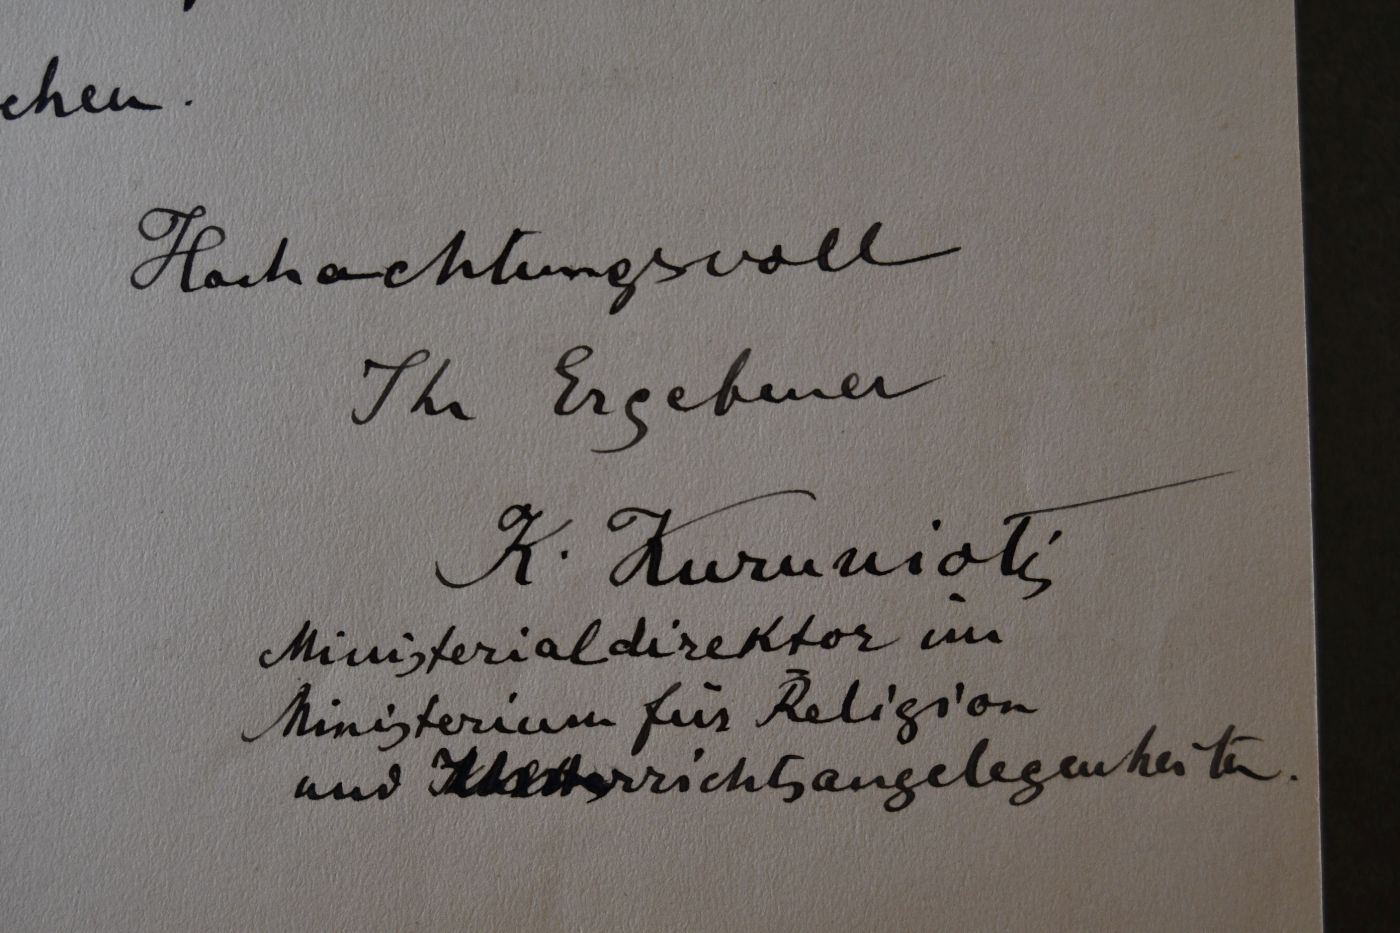 chen.
Hochachtungsvoll
Ihr Ergebener
K. Kuruniotis
Ministerialdirektor im
Ministerium für Religion
und Unterrichtsangelegenheiten.